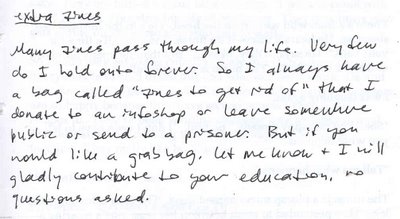 extra zines
Many zines pass through my life. Very few
do I hold onto forever. So I always have
a bag called "zines to get rid of" that I
donate to an infoshop or leave somewhere
public or send to a prisoner. But if you
would like a grab bag, let me know + I will
gladly contribute to your education, no
questions asked.